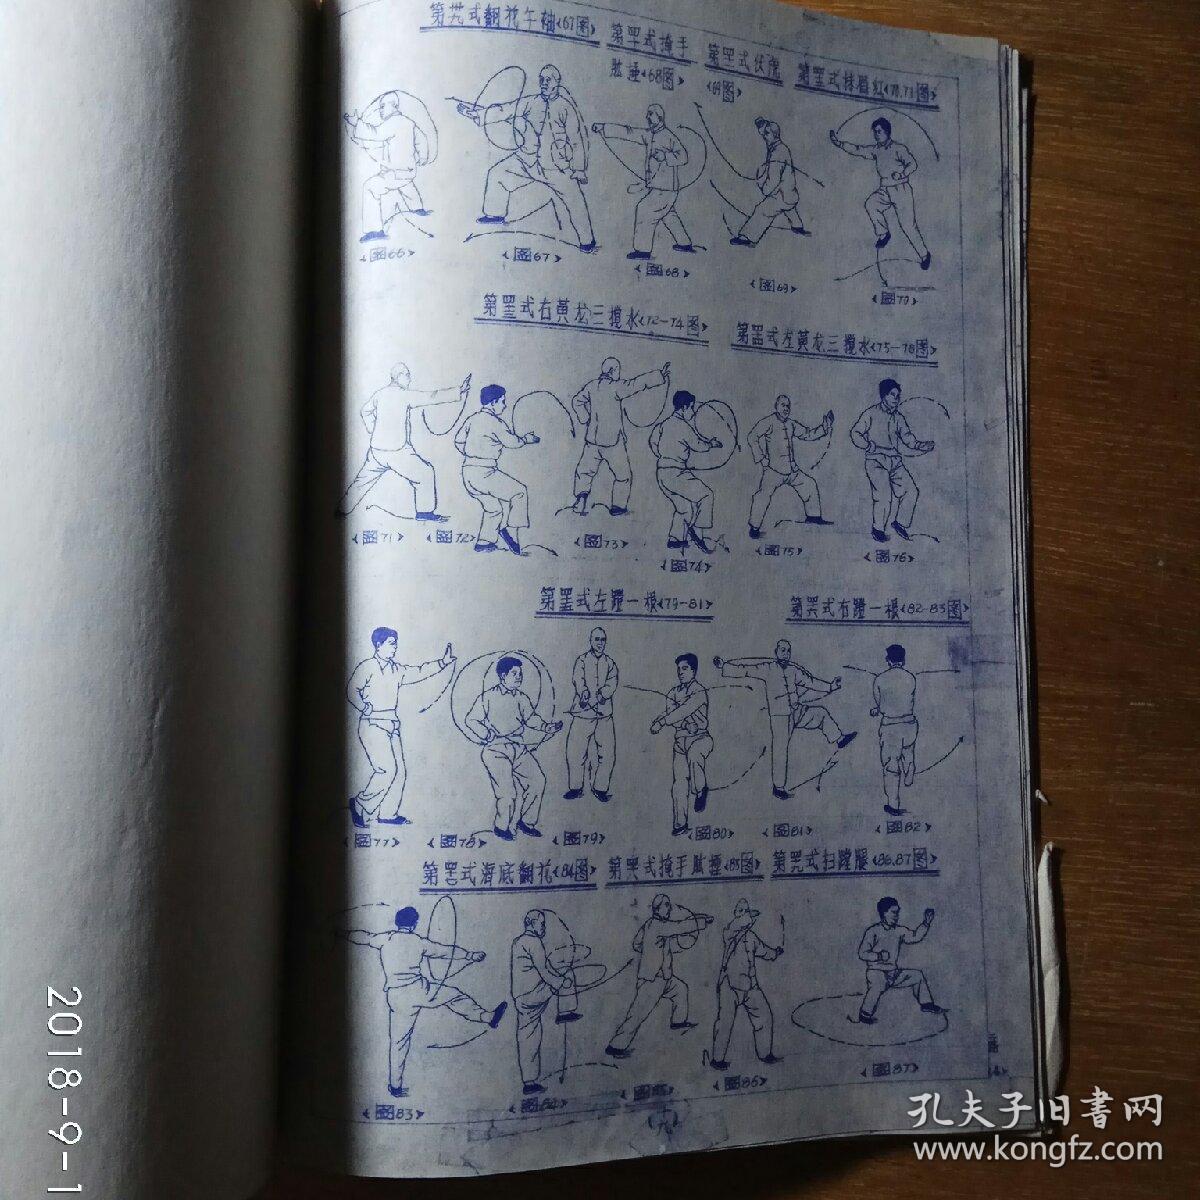 第卅九式翻花午袖《67图》
第四十式掩手
肱捶《68图》
第四十一式伏虎
《69图》
第四十二式抹眉红《70.71图》
《图66》
《图67》
《图68》
《图69》
《图70》
式右黄龙三搅水《72-74图》
式左黄龙三搅水《75-78图》
《图71》
《图72》
《图73》
《图74》
《图75》
《图76》
式左蹬一根《79-81》
式右蹬一根《82-83图》
《图77》
《图78》
《图79》
《图80》
《图81》
《图82》
式海底翻花《84图》
式掩手肱捶《85图》
式扫蹚腿《86.87图》
《图83》
《图84》
《图85》
《图86》
《图87》
2018-9-1
孔夫子旧書网
www.kongfz.com